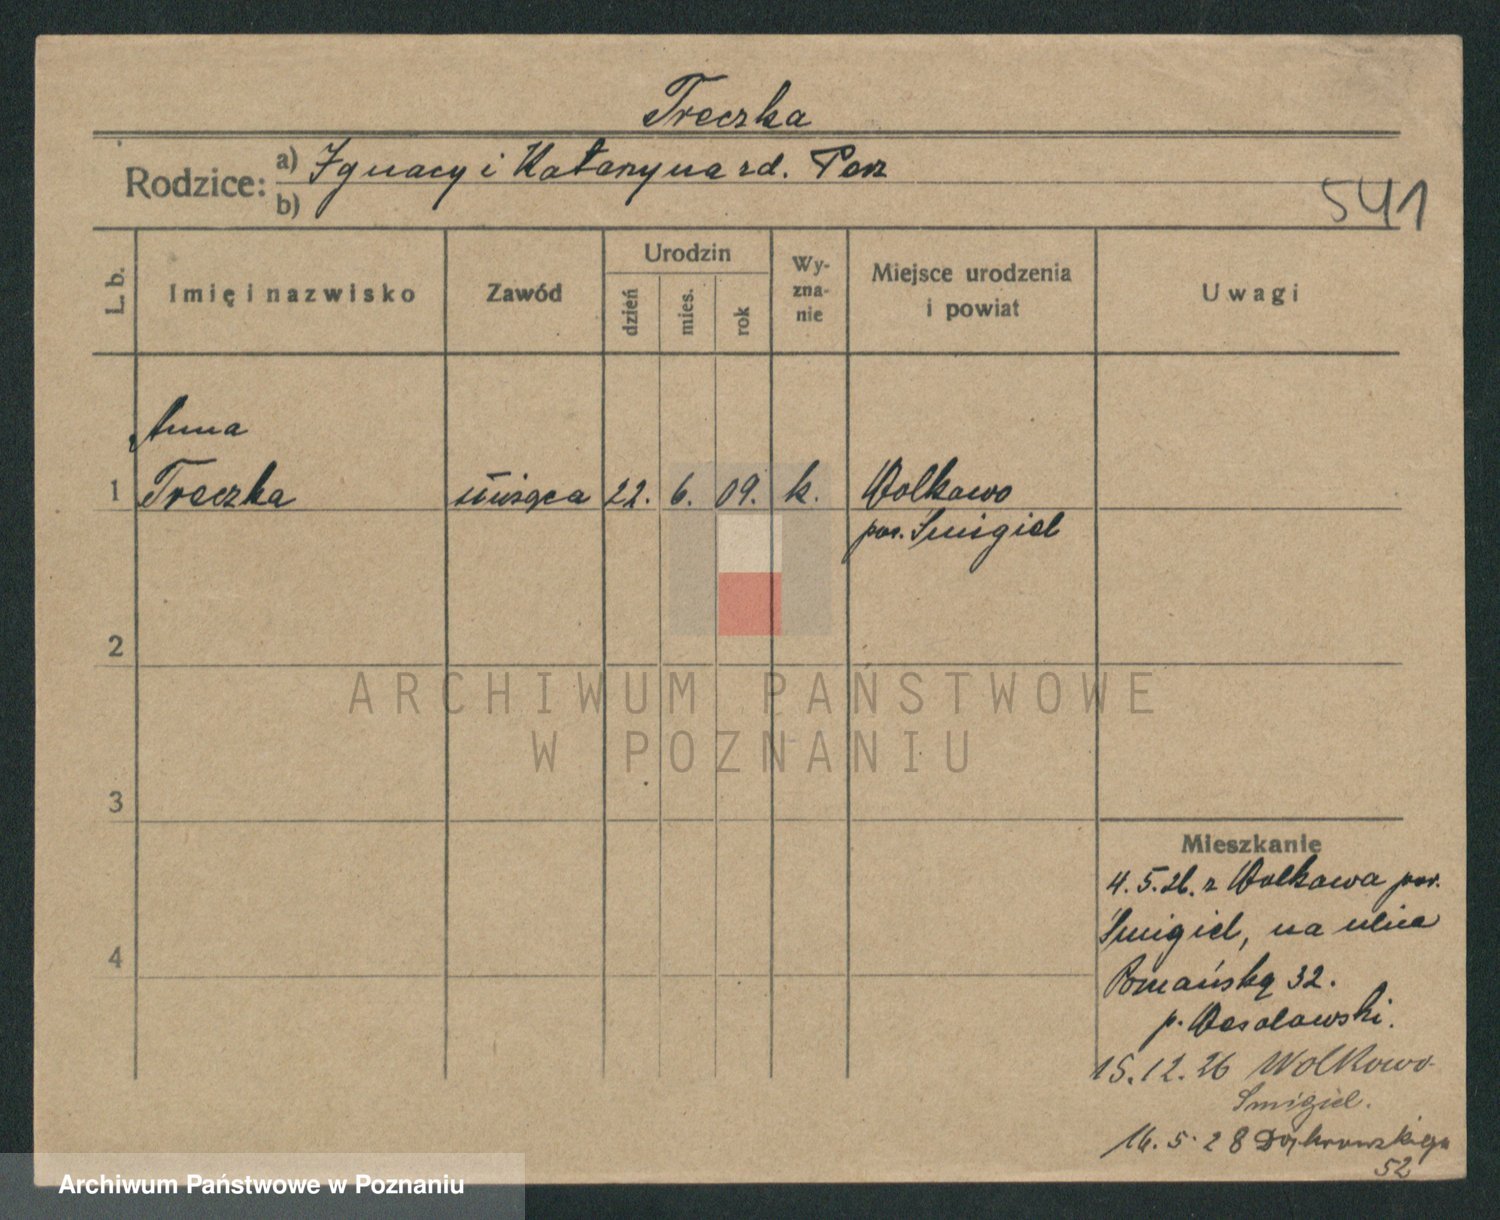 Treczka
Rodzice: a) Ignacy i Katarzyna rd.
b)
541
L. b.
Imię i nazwisko
Zawód
Urodzin
dzień
mies.
rok
Wy-
zna-
nie
Miejsce urodzenia
i powiat
Uwagi
Anna
1 Treczka służąca 22. 6. 09. k. Wolkowo
pow. Śmigiel
2
3
4
ARCHIWUM PAŃSTWOWE
W POZNANIU
Mieszkanie
4.5.26. z Wolkowa pow.
Śmigiel, na ulica
Poznańską 32.
p. Wesolowski.
15.12.26 Wolkowo
Smigiel.
16.5.28 Dąbrowskiego
52
Archiwum Państwowe w Poznaniu